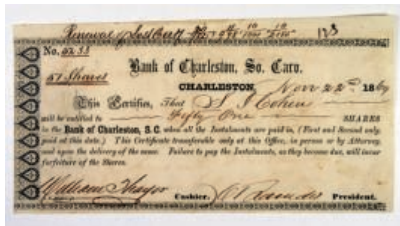 Renewal of Lost Cert
128
No. 5238
51 Shares
Bank of Charleston, So. Caro.
CHARLESTON, Novr 22d 186
This Certifies, That S. I. Cohen
will be entitled to Fifty One SHARES
in the Bank of Charleston, S. C. when all the Instalments are paid in, (First and Second only
paid at this date.) This Certificate transferable only at this Office, in person or by Attorney
and upon the delivery of the same. Failure to pay the Instalments, as they become due, will incur
forfeiture of the Shares.
William Thayer Cashier. President.